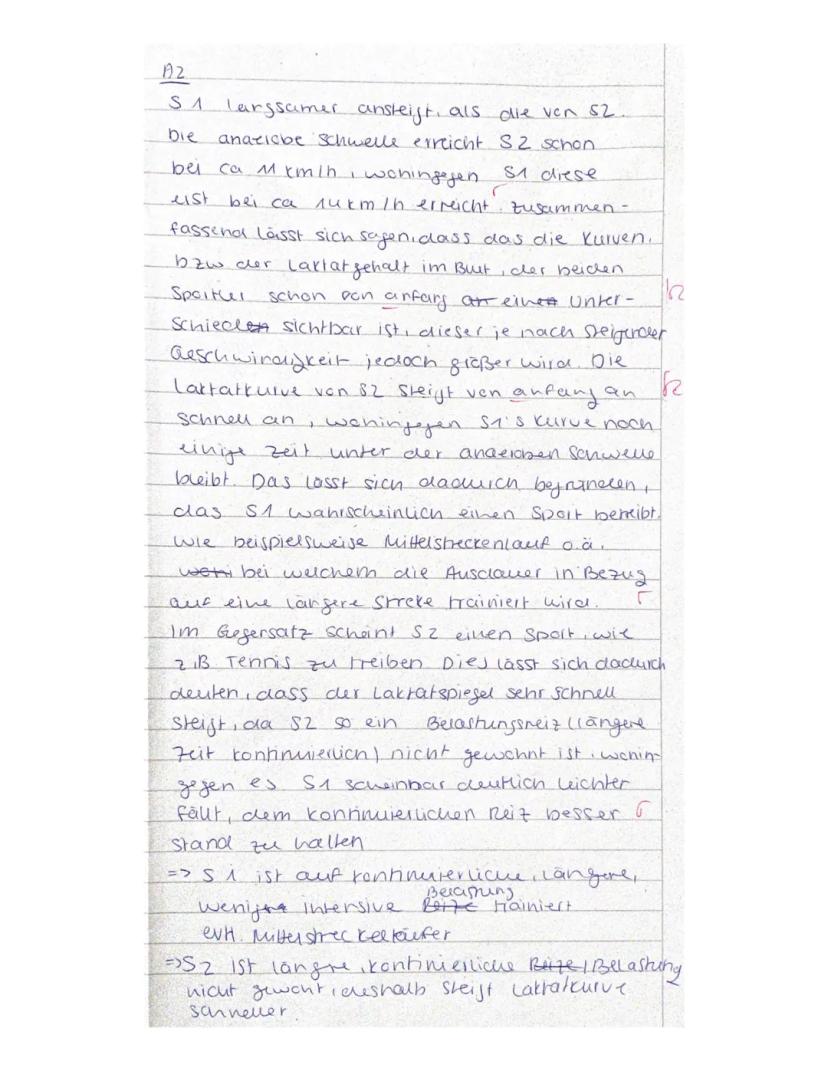 A2
S1 langsamer ansteigt, als die von S2.
Die anaerobe Schwelle erreicht S2 schon
bei ca 11 km/h, woningegen S1 diese
erst bei ca 14km/h erreicht. Zusammen-
fassend lässt sich sagen, dass das die Kurven,
bzw der Laktatgehalt im Blut, der beiden
Sportler schon von anfang an einen Unter-
schieden sichtbar ist, dieser je nach steigender
Geschwindigkeit jedoch größer wird. Die
Laktatkurve von S2 steigt von anfang an
schnell an, woningegen S1's Kurve noch
einige Zeit unter der anaeroben Schwelle
bleibt. Das lässt sich dadurch begründen,
das S1 wahrscheinlich einen Sport betreibt,
wie beispielsweise Mittelstreckenlauf o.ä.
bei welchem die Ausdauer in Bezug
auf eine längere Streke trainiert wird.
Im Gegensatz scheint S2 einen Sport, wie
z.B. Tennis zu treiben. Dies lässt sich dadurch
deuten, dass der Laktatspiegel sehr schnell
steigt, da S2 so ein Belastungsreiz (längere
Zeit kontinuierlich) nicht gewohnt ist, wonin-
gegen es S1 scheinbar deutlich leichter
fällt, dem kontinuierlichen Reiz besser
stand zu halten
=> S1 ist auf kontinuierliche, längere,
wenige intensive Reize Belastung trainiert
evtl. Mittelstreckenläufer
=> S2 ist längre, kontinierliche Reize/Belastung
nicht gewont, deshalb steigt Laktatkurve
schneller.